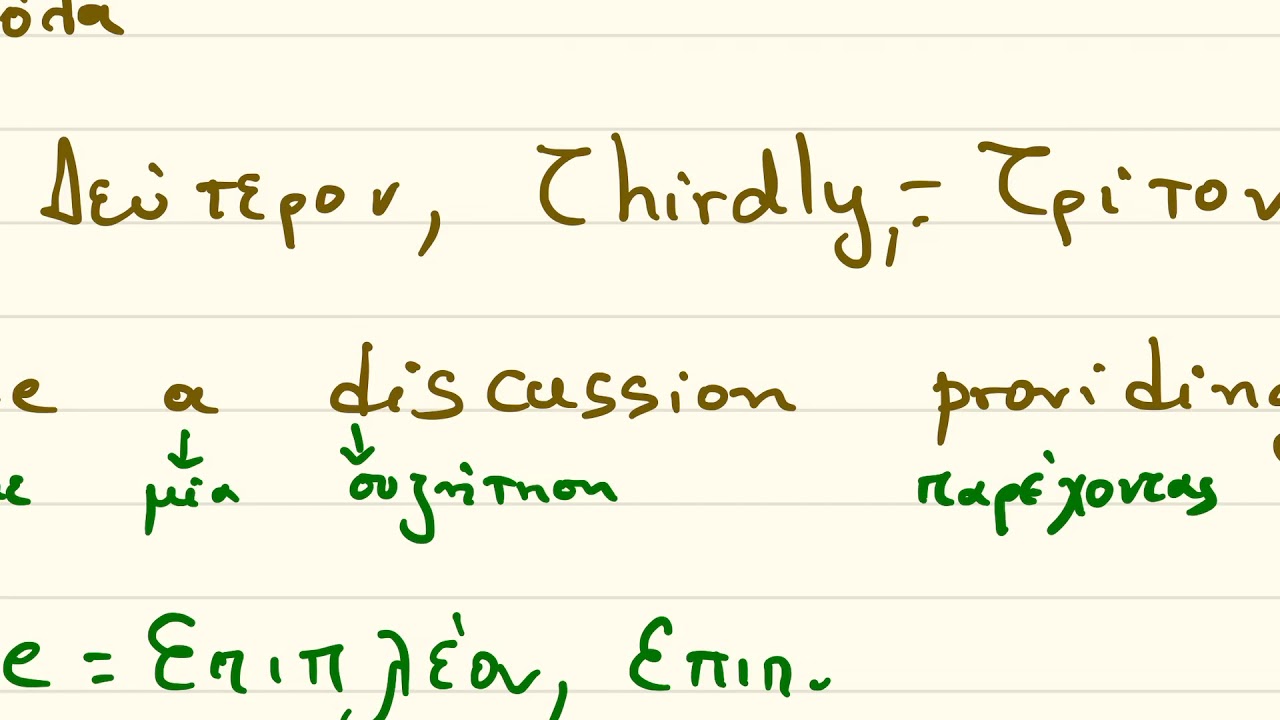 όλα
Δεύτερον, Thirdly, = Τρίτον
e a discussion providing
με μία συζήτηση παρέχοντας
e = Επιπλέον, Επιπ.